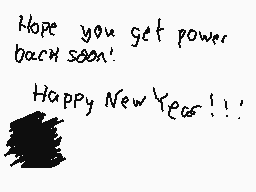 Hope you get power
back soon!
Happy New Year!!!